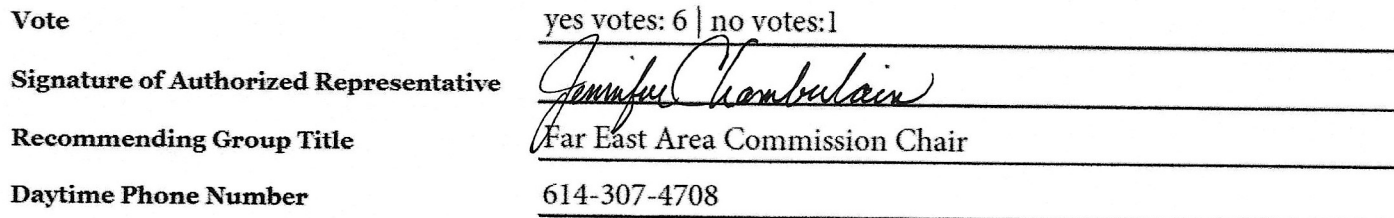 Vote yes votes: 6 | no votes:1
Signature of Authorized Representative Jennifer Chamberlain
Recommending Group Title Far East Area Commission Chair
Daytime Phone Number 614-307-4708